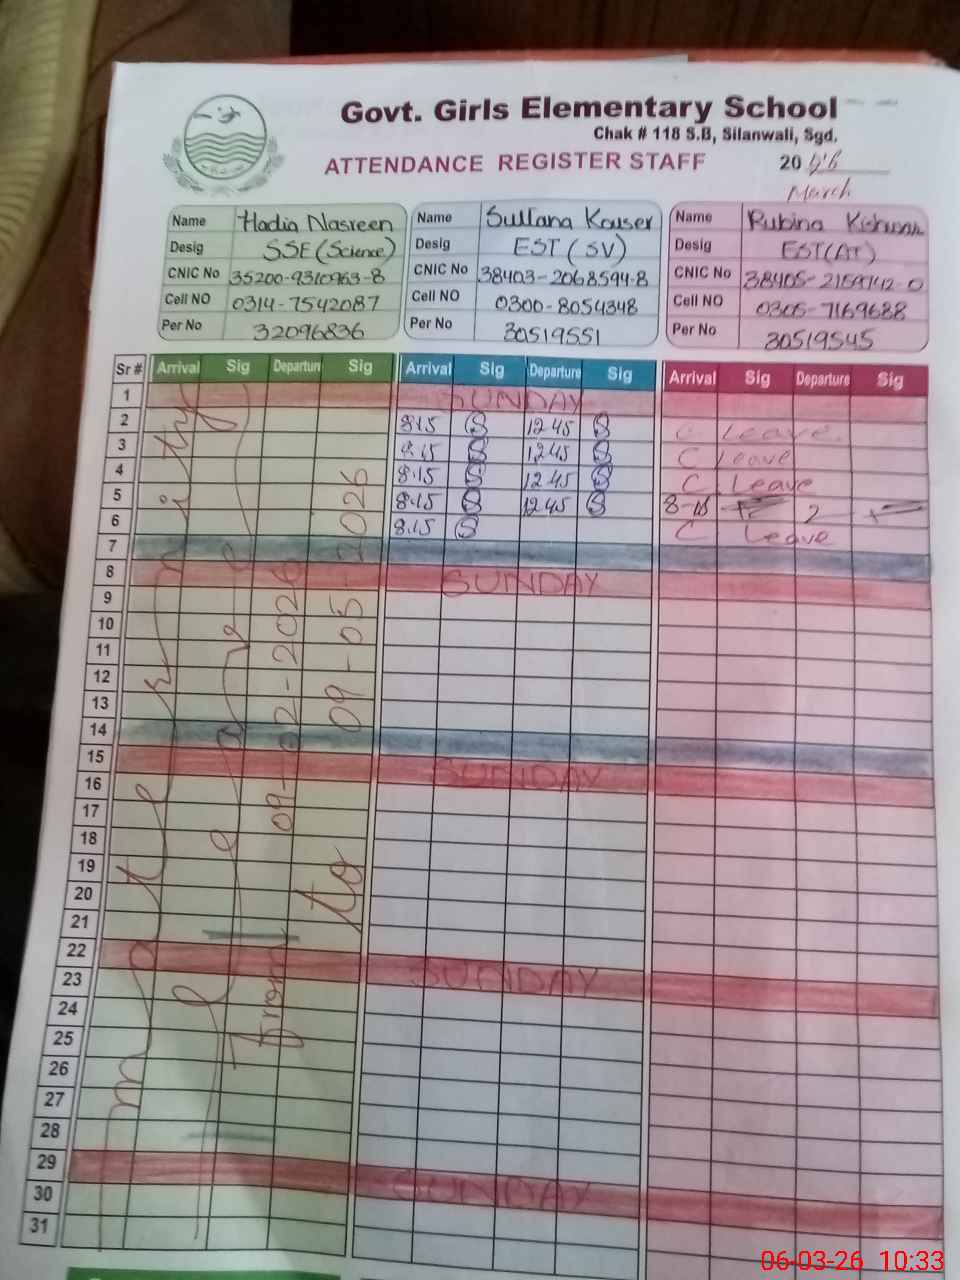 Govt. Girls Elementary School
Chak # 118 S.B, Silanwali, Sgd.
ATTENDANCE REGISTER STAFF
20
March
Name Hadia Nasreen
Desig SSE (Science)
CNIC No 35200-9310963-8
Cell NO 0314-7542087
Per No 32096836
Name Sultana Kouser
Desig EST (SV)
CNIC No 38403-2068594-8
Cell NO 0300-8054348
Per No 30519551
Name Rubina Kishwar
Desig EST(AT)
CNIC No 38405-2159742-0
Cell NO 0305-7169688
Per No 30519545
Sr # Arrival Sig Departure Sig Arrival Sig Departure Sig Arrival Sig Departure Sig
1 SUNDAY
2 8:15 S 12:45 S C Leave
3 8:15 S 12:45 S C Leave
4 8:15 S 12:45 S C Leave
5 8:15 S 12:45 S 8-15 2
6 8:15 S C Leave
7
8 SUNDAY
9
10
11
12
13
14
15 SUNDAY
16
17
18
19
20
21
22 SUNDAY
23
24
25
26
27
28
29 SUNDAY
30
31
maternity
leave
from 09-02-2026
to 09-05-2026
06-03-26 10:33